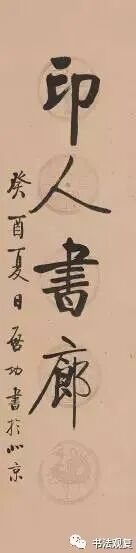 印人書廊
癸酉夏日啓功書於北京
书法观复